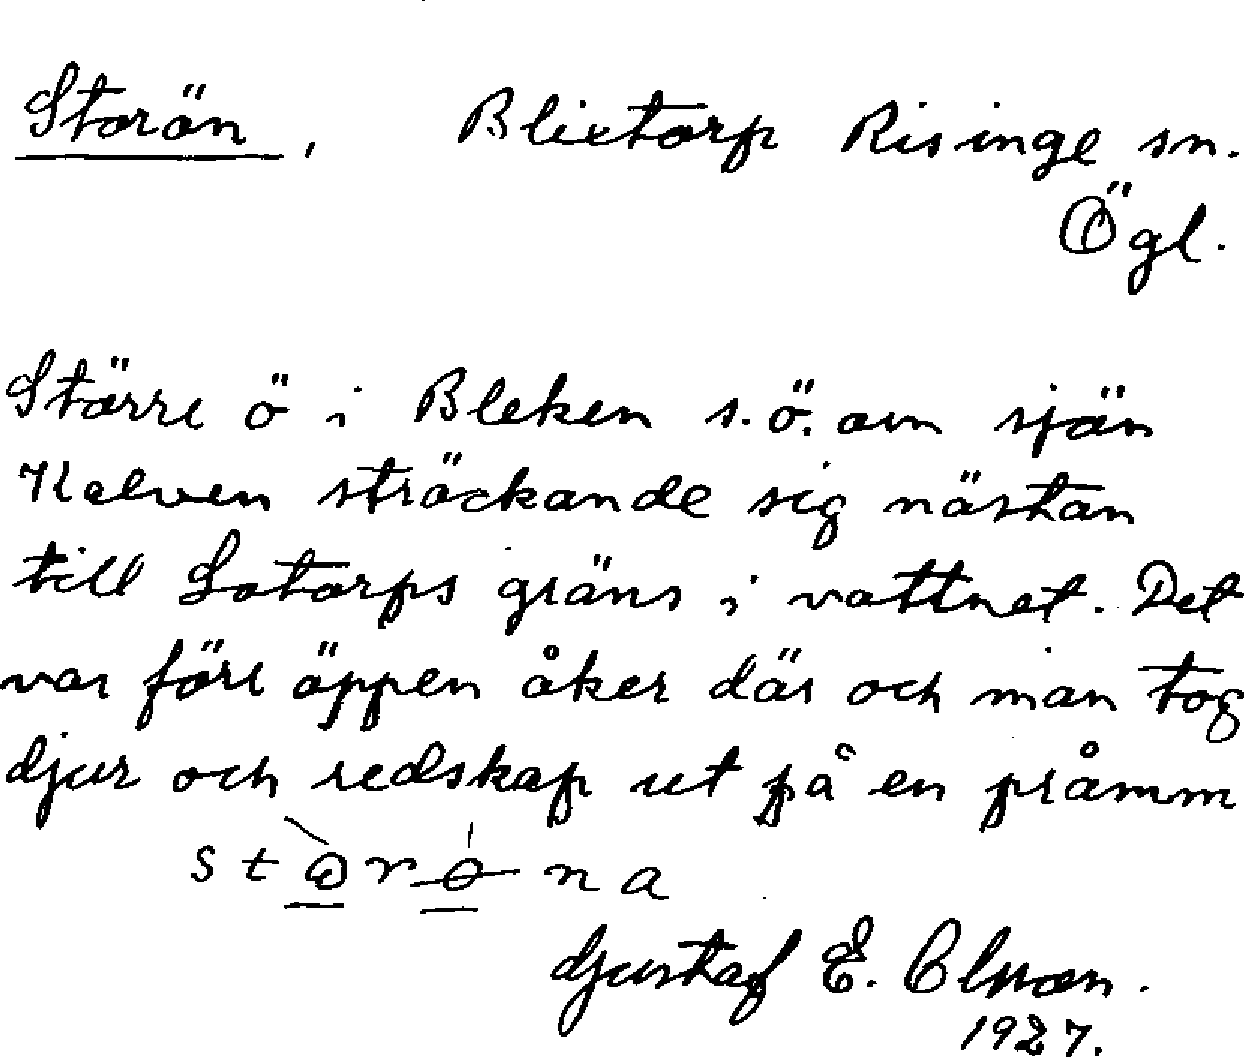 Storön, Blixtorp Risinge sn.
Ögl.
Större ö i Bleken s.ö. om sjön
Kalven sträckande sig nästan
till Lotorps gräns i vattnet. Det
var förr öppen åker där och man tog
djur och redskap ut på en pråmm
Gustaf E. Olsson.
1927.